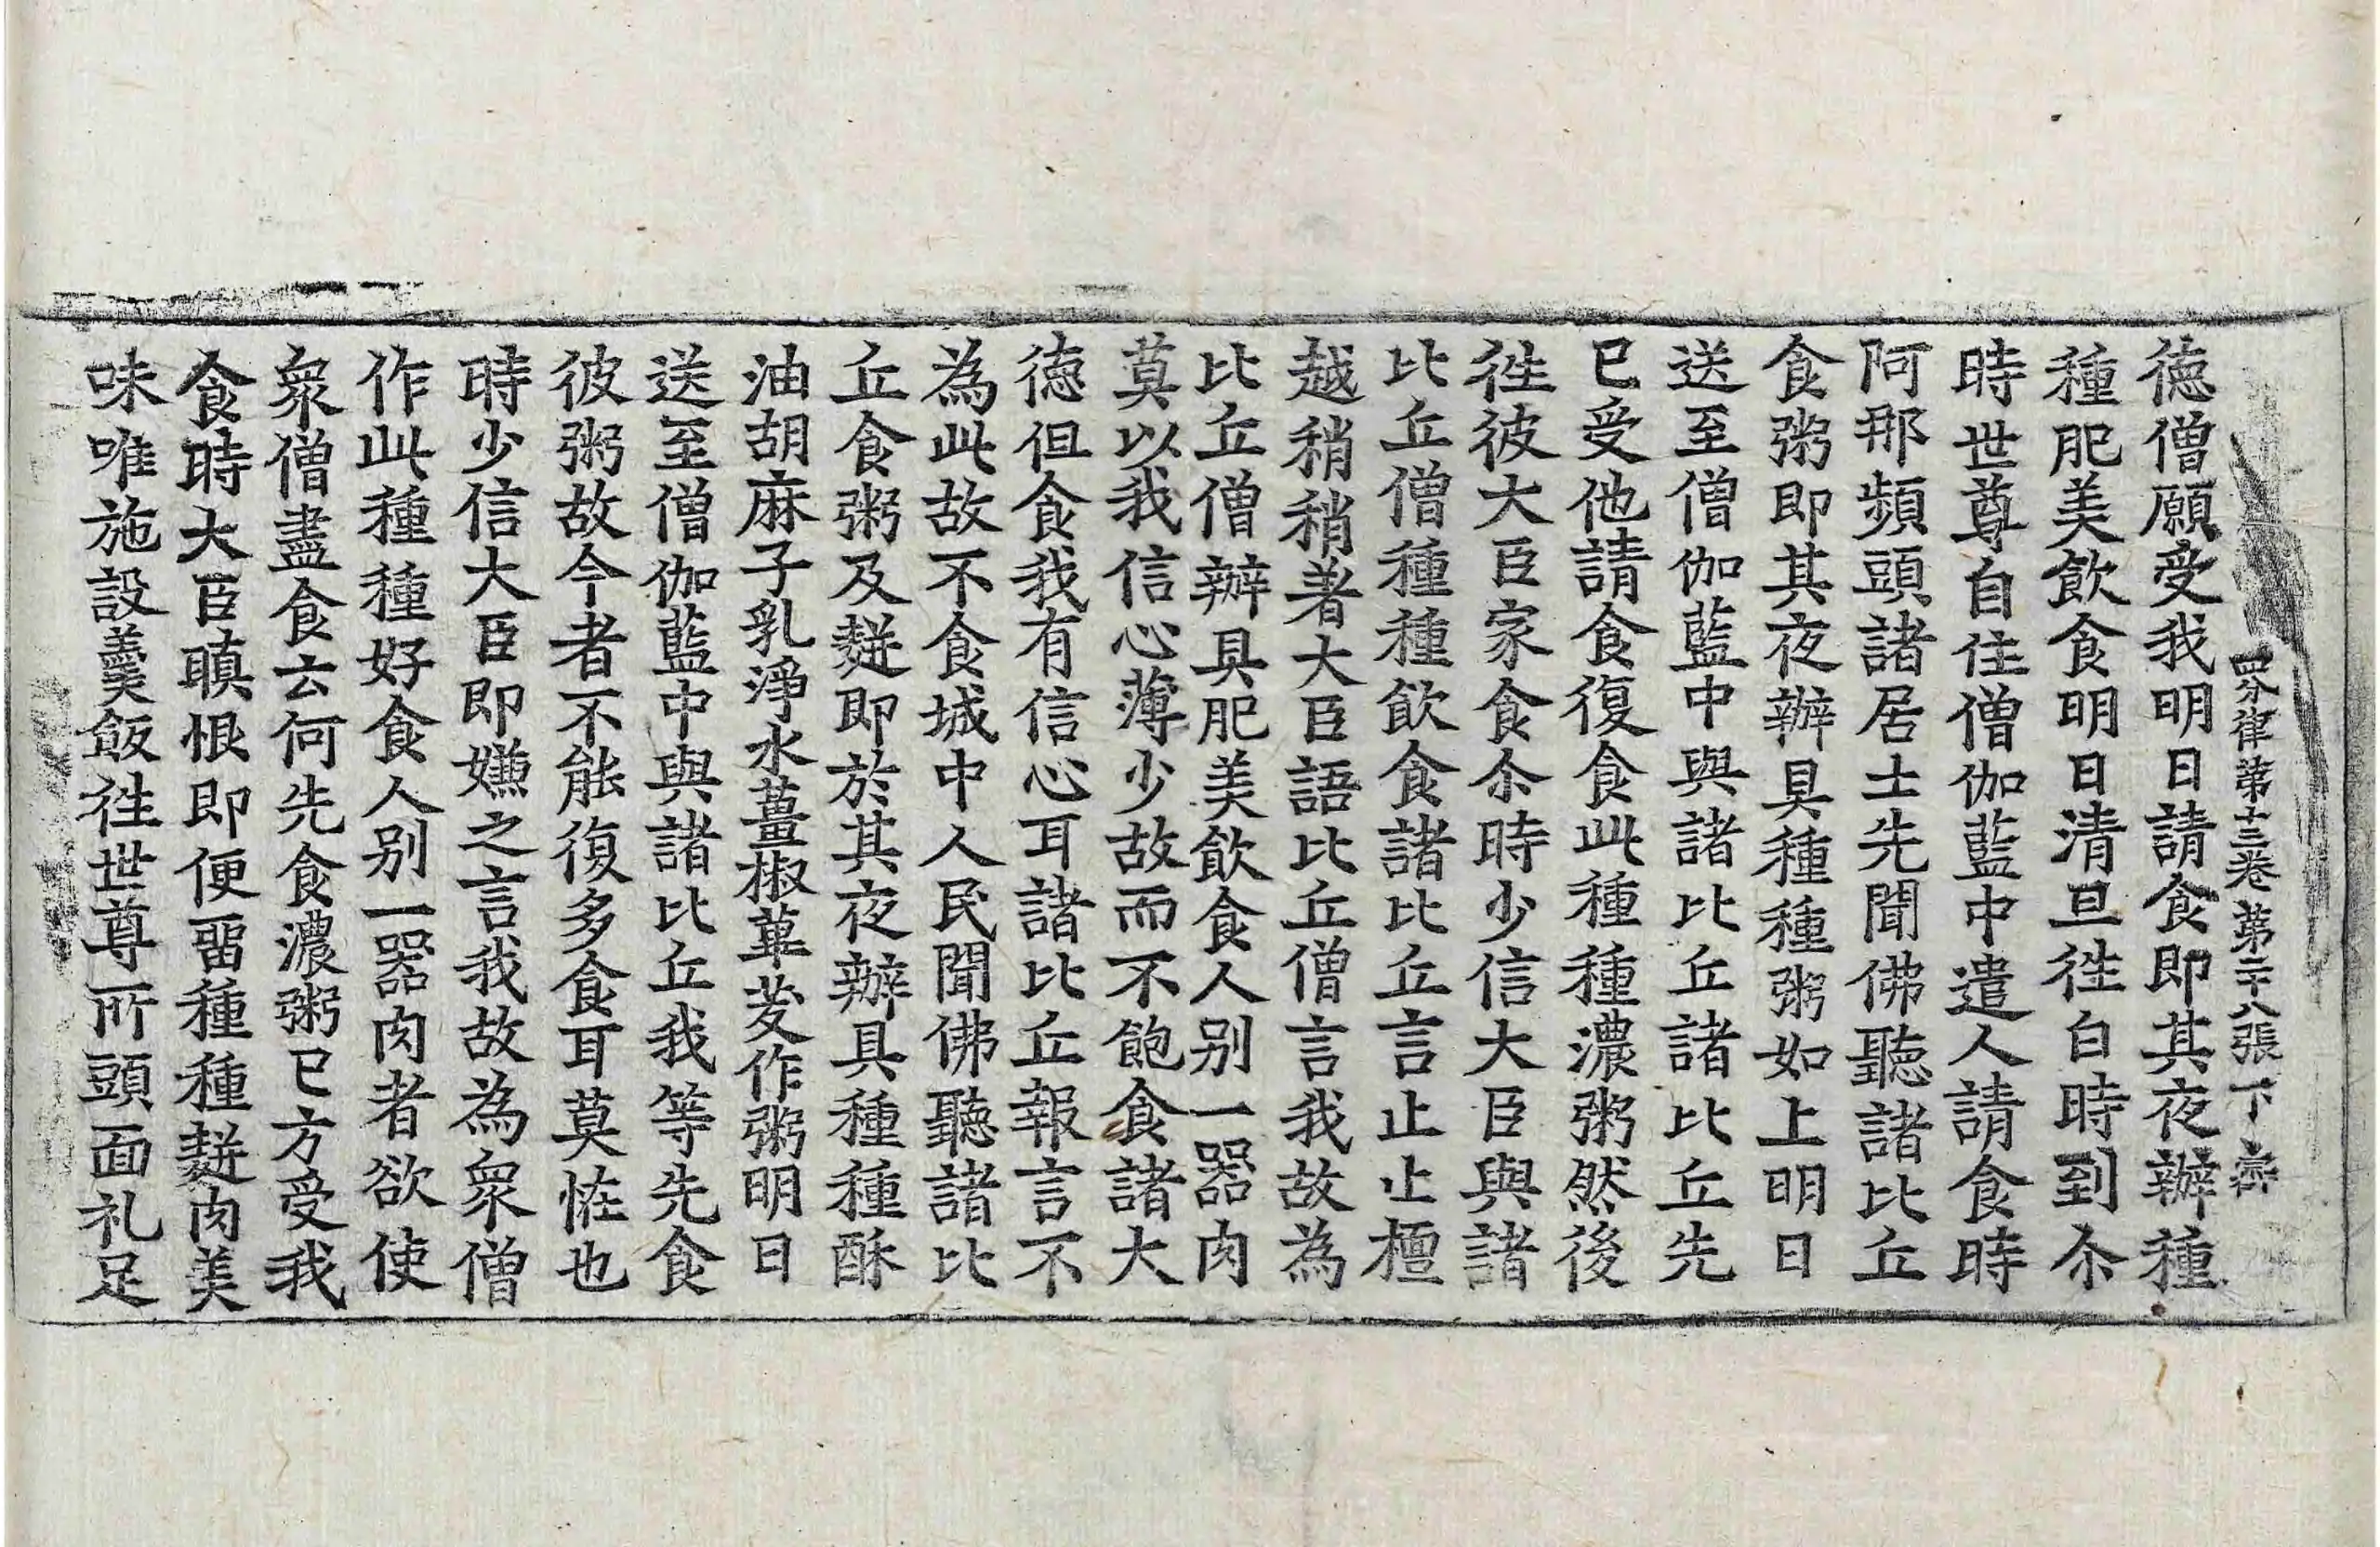 四分律第十三卷 第二十八張 下 齊
徳僧願受我明日請食即其夜辦種
種肥美飲食明日清旦徃白時到尒
時世尊自住僧伽藍中遣人請食時
阿那頻頭諸居士先聞佛聽諸比丘
食粥即其夜辦具種種粥如上明日
送至僧伽藍中與諸比丘諸比丘先
已受他請食復食此種種濃粥然後
徃彼大臣家食尒時少信大臣與諸
比丘僧種種飲食諸比丘言止止檀
越稍稍著大臣語比丘僧言我故為
比丘僧辦具肥美飲食人別一器肉
莫以我信心薄少故而不飽食諸大
徳但食我有信心耳諸比丘報言不
為此故不食城中人民聞佛聽諸比
丘食粥及䴵即於其夜辦具種種酥
油胡麻子乳淨水薑椒蓽茇作粥明日
送至僧伽藍中與諸比丘我等先食
彼粥故今者不能復多食耳莫恠也
時少信大臣即嫌之言我故為衆僧
作此種種好食人別一器肉者欲使
衆僧盡食云何先食濃粥已方受我
食時大臣瞋恨即便留種種䴵肉美
味唯施設羹飯徃世尊所頭面礼足